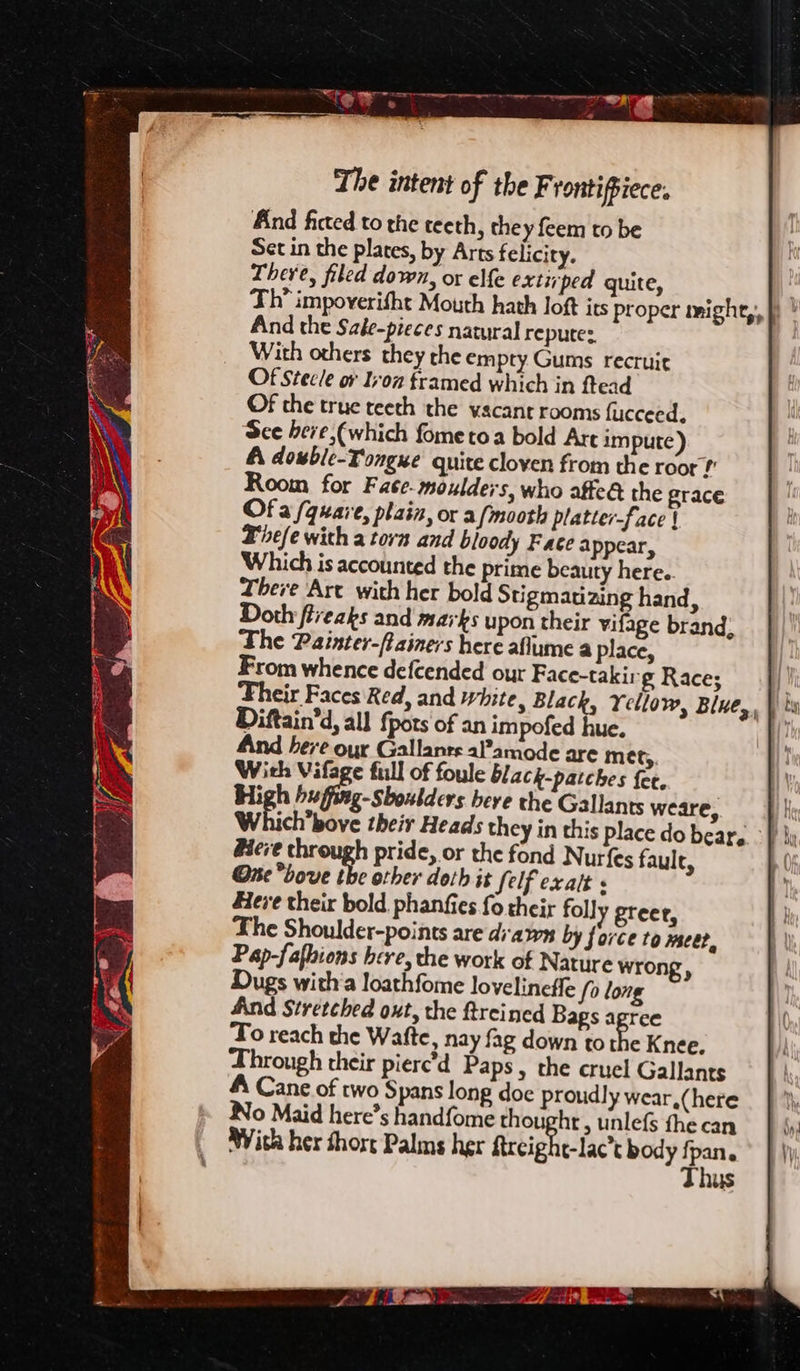 The intent of the Frontiſpiece.
And fitted to the teeth, they ſeem to be
Set in the plates, by Arts felicity.
There, filed down, or elſe extirped quite,
Th' impoveriſht Mouth hath loſt its proper might,
And the Sale-pieces natural repute:
With others they the empty Gums recruit
Of Steele or Iron framed which in ſtead
Of the true teeth the vacant rooms ſucceed.
See here, (which ſome to a bold Art impute)
A double-Tongue quite cloven from the root!
Room for Face-moulders, who affect the grace
Of a ſquare, plain, or a ſmooth platter-face!
Theſe with a torn and bloody Face appear,
Which is accounted the prime beauty here.
There Art with her bold Stigmatizing hand,
Doth ſtreaks and marks upon their viſage brand,
The Painter-ſtainers here aſſume a place,
From whence deſcended our Face-taking Race;
Their Faces Red, and white, Black, Yellow, Blue,
Diſtain'd, all ſpots of an impoſed hue.
And here our Gallants al'amode are met,
With Viſage full of foule black-patches ſet.
High huffing-Shoulders here the Gallants weare,
Which 'bove their Heads they in this place do beare.
Here through pride, or the fond Nurſes fault,
One 'bove the other doth it ſelf exalt:
Here their bold phanſies ſo their folly greet,
The Shoulder-points are drawn by force to meet,
Pap-faſhions here, the work of Nature wrong,
Dugs with a loathſome lovelineſſe ſo long
And Stretched out, the ſtreined Bags agree
To reach the Waſte, nay ſag down to the Knee.
Through their pierc'd Paps, the cruel Gallants
A Cane of two Spans long doe proudly wear, (here
No Maid here's handſome thought, unleſs ſhe can
With her ſhort Palms her ſtreight-lac't body ſpan.
Thus